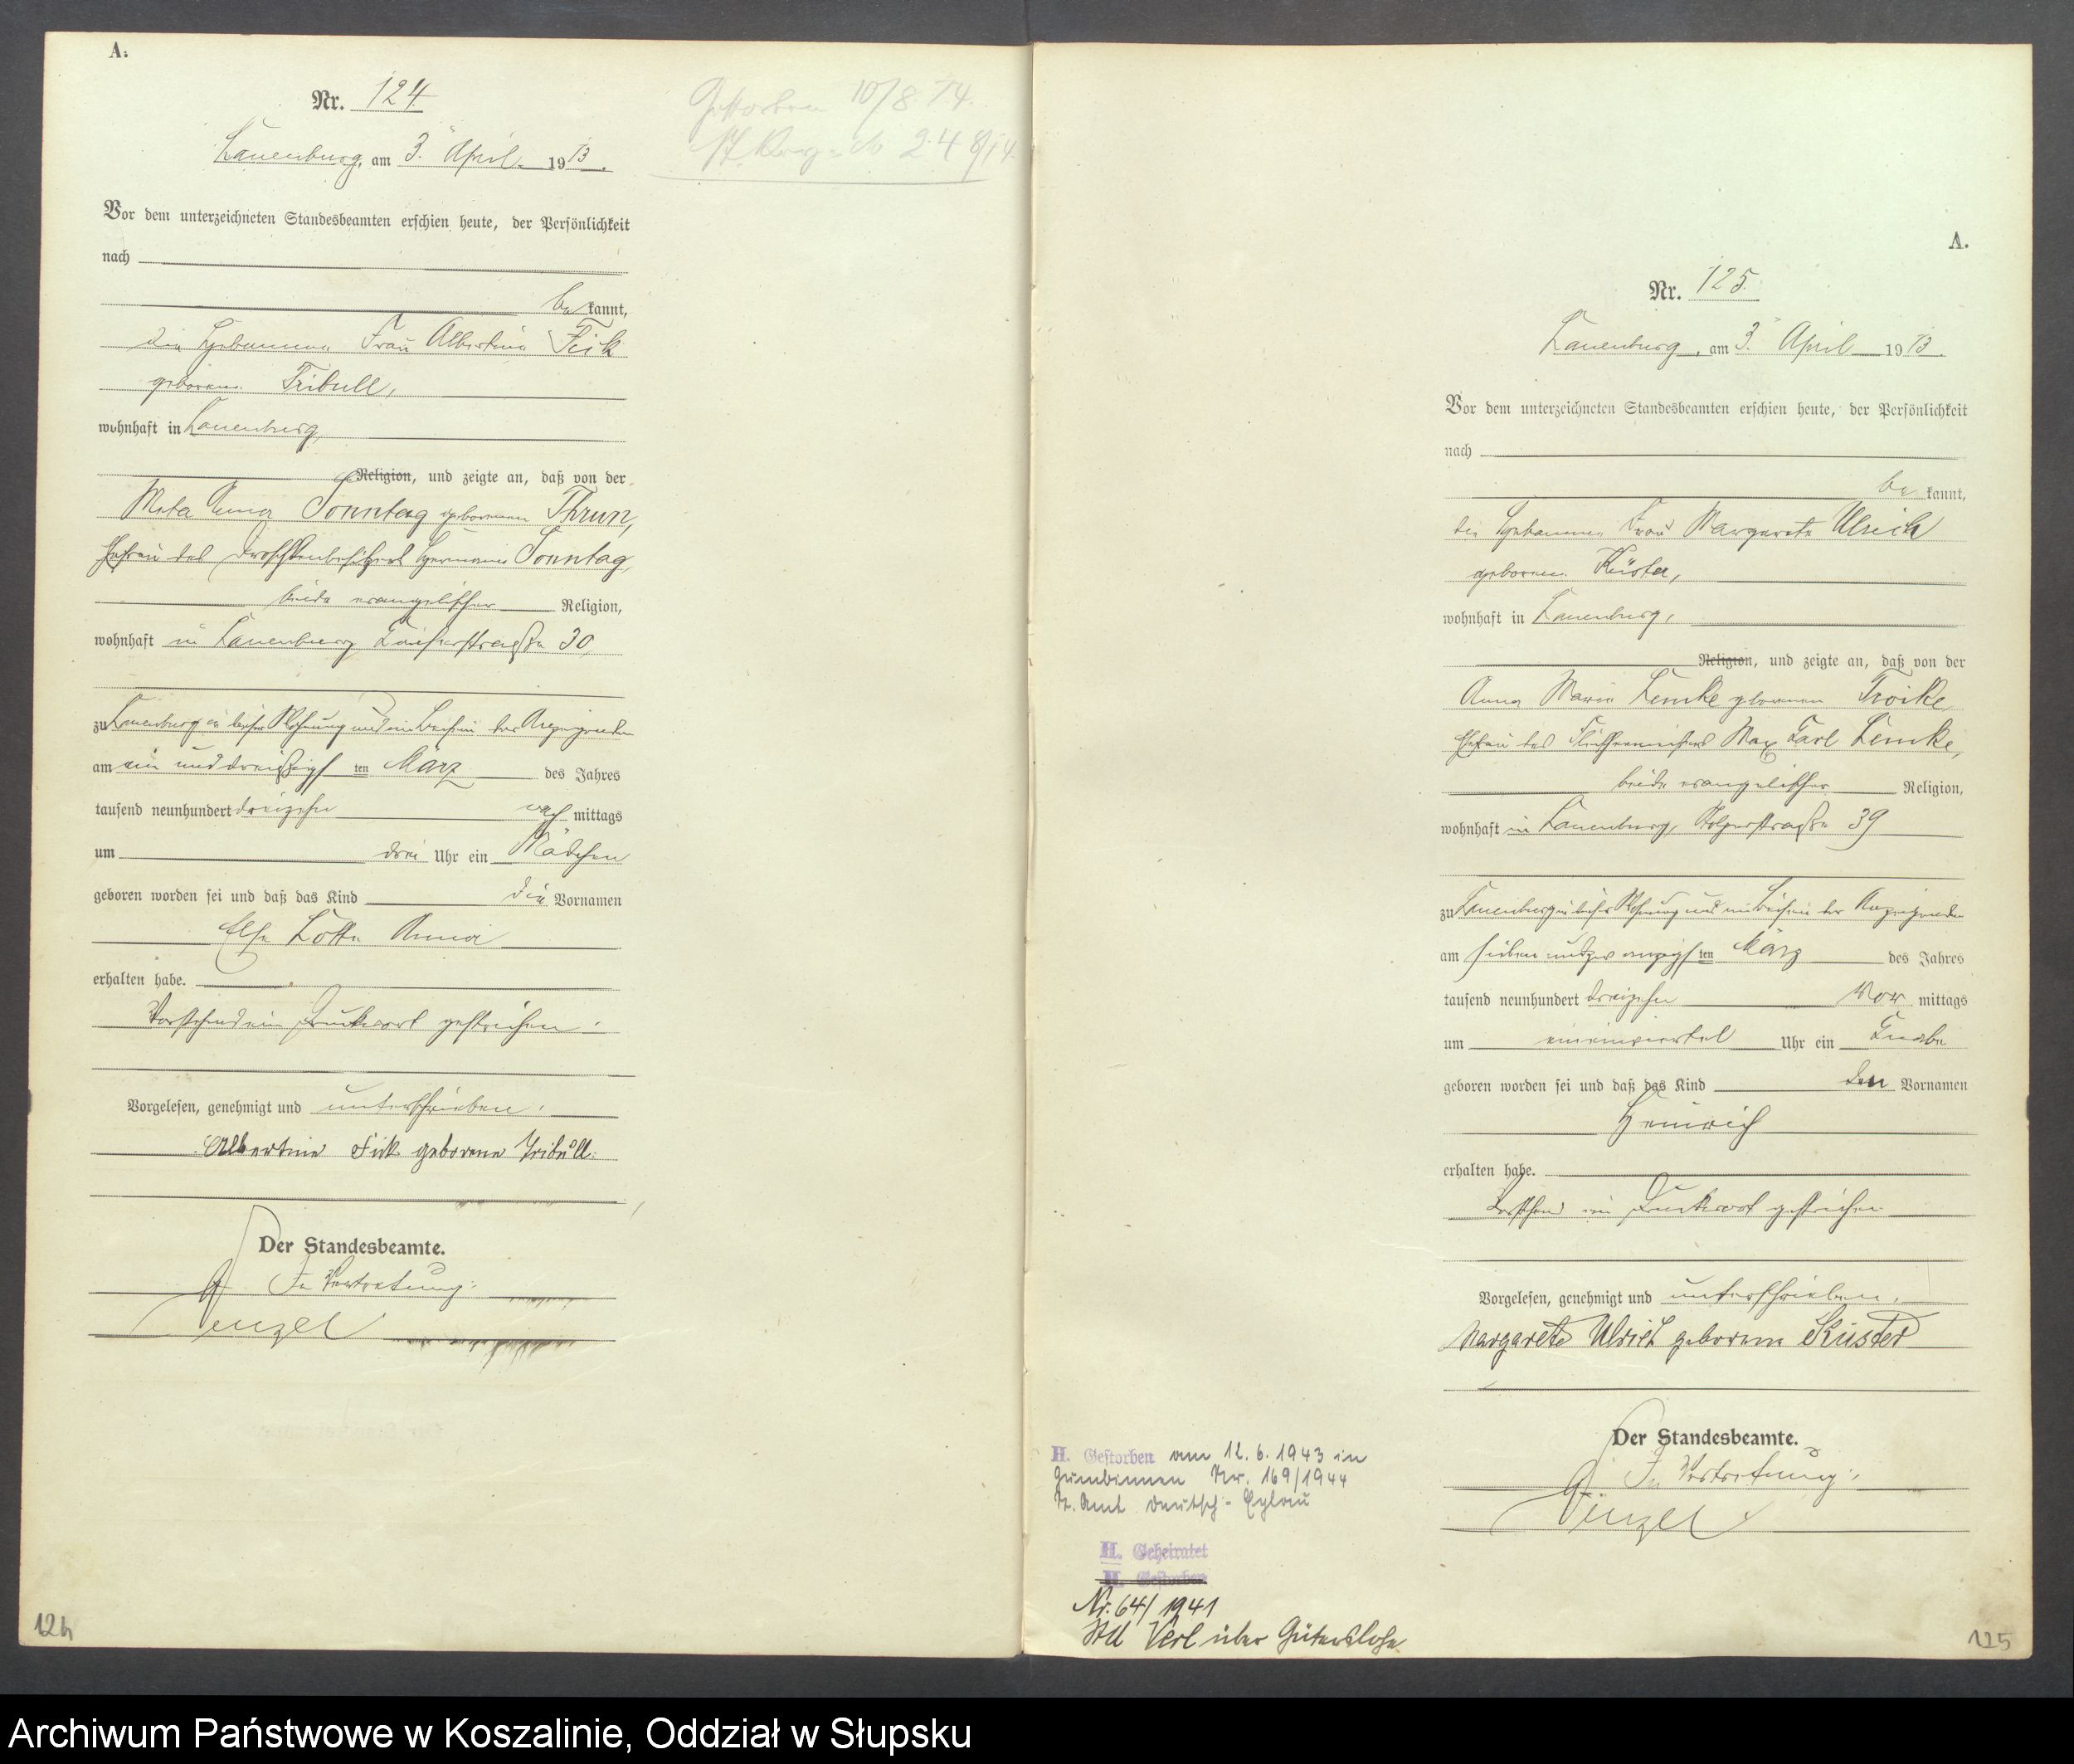 A.
Nr. 124
Lauenburg, am 3. April 1913.
Gestorben 10/8.14.
Vor dem unterzeichneten Standesbeamten erschien heute, der Persönlichkeit
nach
be kannt,
die Hebamme Frau Albertine Fick
geborene Tribull,
wohnhaft in Lauenburg,
Religion, und zeigte an, daß von der
Meta Anna Sonntag geborenen Thrun,
Ehefrau des Droschkenbesitzers Hermann Sonntag,
beide evangelischer Religion,
wohnhaft in Lauenburg 30,
zu Lauenburg in dieser Wohnung und im Beisein der Anzeigenden
am ein und dreißigsten März des Jahres
tausend neunhundert dreizehn nach mittags
um drei Uhr ein Mädchen
geboren worden sei und daß das Kind die Vornamen
Else Lotte Anna
erhalten habe.
Vorstehend ein Druckwort gestrichen.
Vorgelesen, genehmigt und unterschrieben.
Albertine Fick geborene Tribull.
Der Standesbeamte.
In Vertretung.
124
A.
Nr. 125.
Lauenburg, am 3. April 1913.
Vor dem unterzeichneten Standesbeamten erschien heute, der Persönlichkeit
nach
be kannt,
die Hebamme Frau Margarete Ulrich
geborene Küster,
wohnhaft in Lauenburg,
Religion, und zeigte an, daß von der
Anna Maria Lemke geborenen Troike
Ehefrau des Fleischermeisters Max Carl Lemke,
beide evangelischer Religion,
wohnhaft in Lauenburg, Stolperstraße 39
zu Lauenburg in dieser Wohnung und im Beisein der Anzeigenden
am sieben und zwanzigsten März des Jahres
tausend neunhundert dreizehn Vor mittags
um eineinviertel Uhr ein Knabe
geboren worden sei und daß das Kind den Vornamen
Heinrich
erhalten habe.
Vorstehend ein Druckwort gestrichen.
Vorgelesen, genehmigt und unterschrieben.
Margarete Ulrich geborene Küster
Der Standesbeamte.
In Vertretung.
H. Gestorben am 12.6.1943 in
Gumbinnen Nr. 169/1944
St. Amt Deutsch-Eylau
H. Geheiratet
H. Gestorben
Nr. 64/1941
StA Verl über Gütersloh.
125
Archiwum Państwowe w Koszalinie, Oddział w Słupsku